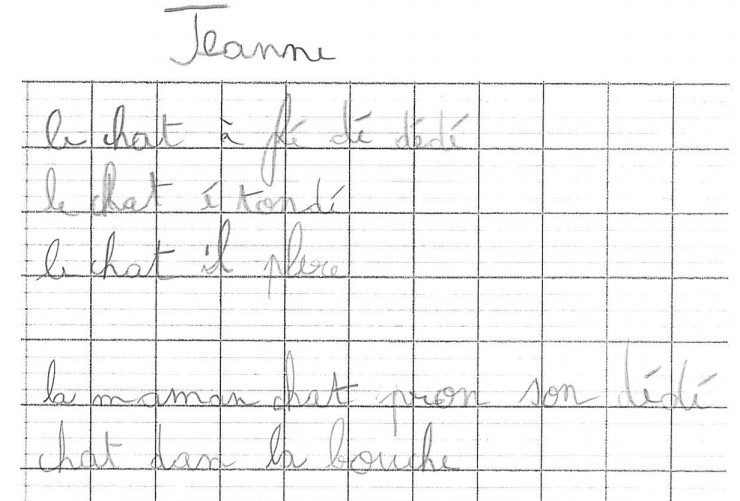 Jeanne
le chat à fé dé dédé
le chat é tondé
le chat il plere
la maman chat pron son dédé
chat dan la bouche